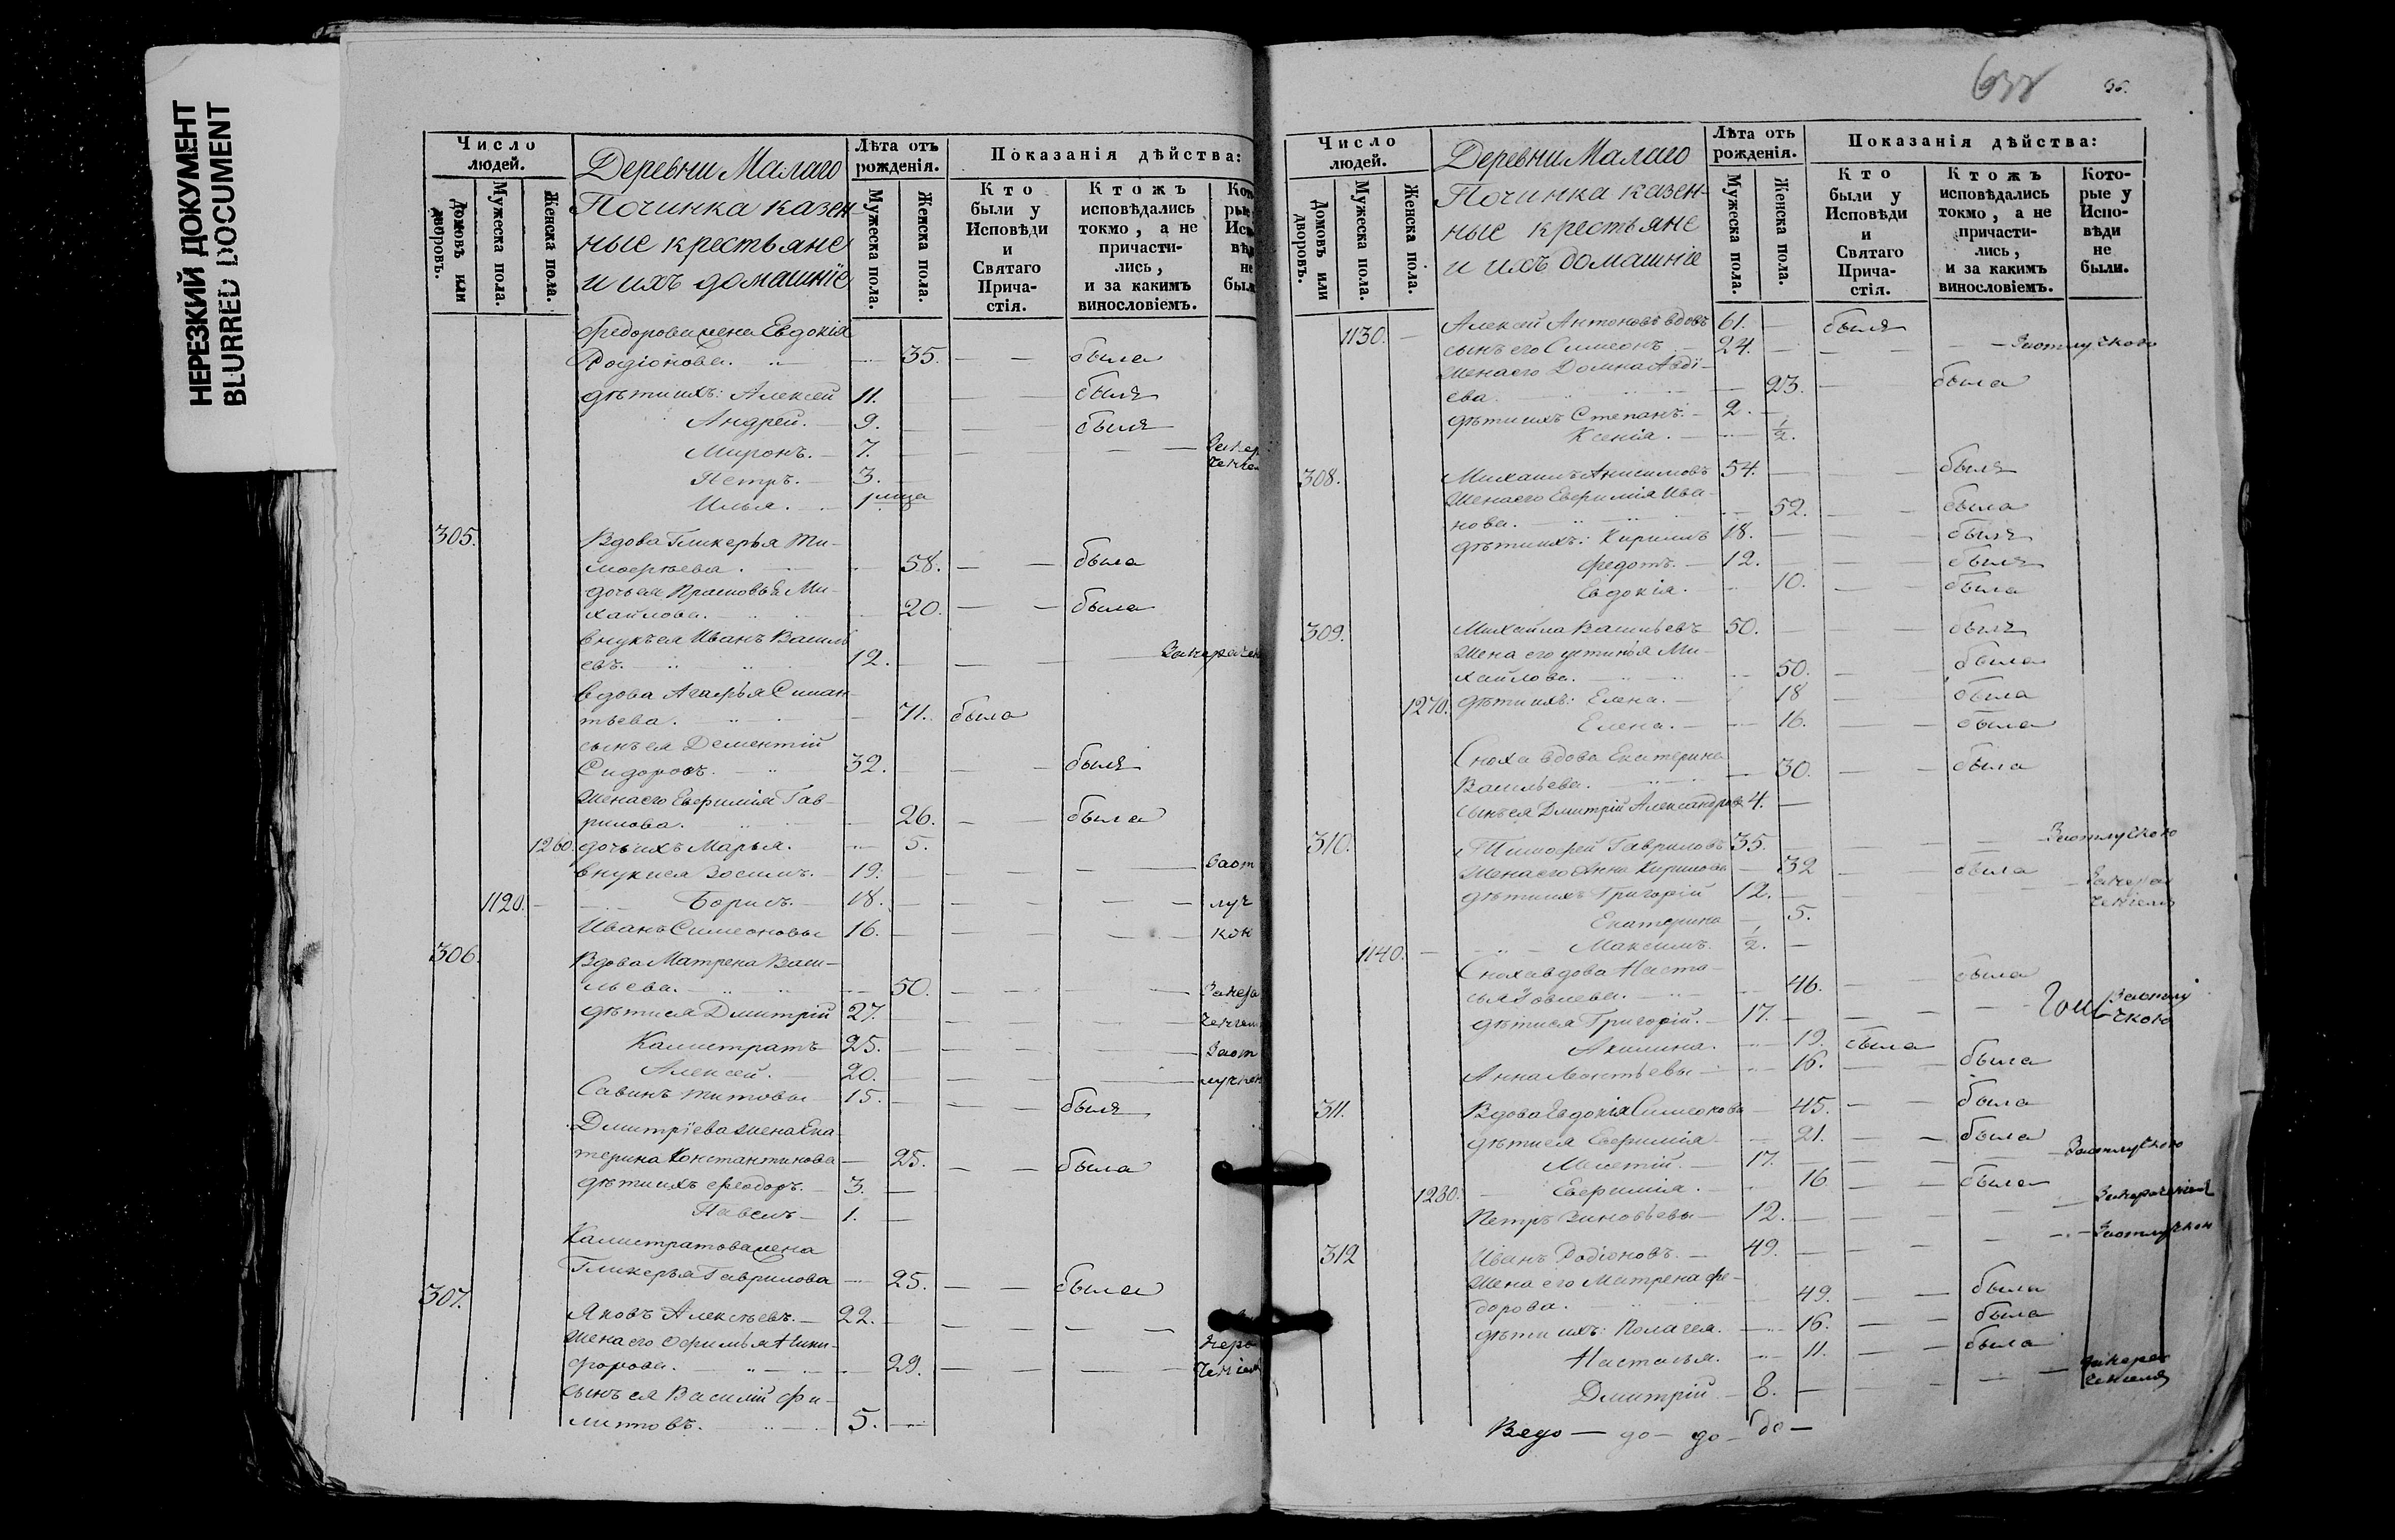 НЕРЕЗКИЙ ДОКУМЕНТ
BLURRED DOCUMENT
Число людей.
Домовъ или дворовъ.
Мужеска пола.
Женска пола.
Деревни Малаго
Починка казен-
ные крестьяне
и ихъ домашніе
Лѣта отъ рожденія.
Мужеска пола.
Женска пола.
Показанія дѣйства:
Кто были у Исповѣди и Святаго Прича-стія.
Ктожъ исповѣдались токмо, а не причасти-лись, и за какимъ винословіемъ.
Ѳедорова жена Евдокія
Родіонова. 35. была
дѣти ихъ: Алексей 11. былъ
Андрей. 9. былъ
Миронъ. 7.
Петръ. 3.
Илья. 1
305. Вдова Гликерья Ти-
моѳеева. 58. была
дочь ея Прасковья Ми-
хайлова. 20. была
внукъ ея Иванъ Василь
евъ. 12.
вдова Агаѳья
71. была
сынъ ея Дементій
Сидоровъ. 32. былъ
жена его Евѳимія Гав-
рилова. 26. была
1260. дочь ихъ Марья. 5.
внуки ея Зосимъ. 19.
1120. Борисъ. 18.
Иванъ Симеоновы 16.
306. Вдова Матрена Васи-
льева. 50.
дѣти ея Дмитрій 27.
Калистратъ 25.
Алексей. 20.
Савинъ Титовы 15. былъ
Дмитріева жена Ека
терина Константинова 25. была
дѣти ихъ Ѳеодоръ. 3.
Павелъ 1.
Калистратова жена
Гликерья Гаврилова 25. была
307. Яковъ Алексѣевъ. 22.
жена его Офимья Ники-
форова. 29.
сынъ ея Василій Фи-
литовъ. 5.
36.
Число людей.
Домовъ или дворовъ.
Мужеска пола.
Женска пола.
Деревни Малаго
Починка казен-
ные крестьяне
и ихъ домашніе
Лѣта отъ рожденія.
Мужеска пола.
Женска пола.
Показанія дѣйства:
Кто были у Исповѣди и Святаго Прича-стія.
Ктожъ исповѣдались токмо, а не причасти-лись, и за какимъ винословіемъ.
Кото-рые у Испо-вѣди не были.
1130. Алексей Антоновъ вдовъ 61. былъ
сынъ его Симеонъ 24. За отлучкою
жена его Домна Авді-
ева. 23. была
дѣти ихъ Степанъ. 2.
Ксенія. 1/2.
308. Михаилъ Анисимовъ 54. былъ
жена его Евѳимія Ива-
нова. 52. была
дѣти ихъ: Кирилъ 18. былъ
Федотъ. 12. былъ
Евдокія. 10. была
309. Михайла Васильевъ 50. былъ
Жена его Устинья Ми-
хайлова. 50. была
1270. дѣти ихъ: Елена. 18 была
Елена. 16. была
Сноха вдова Екатерина
Васильева. 30. была
сынъ ея Дмитрій Александровъ 4.
310. Тимофей Гавриловъ 35. За отлучкою
жена его Анна Кирилова 32 была
дѣти ихъ Григорій 12.
Екатерина 5.
1140. Максимъ. 1/2.
Сноха вдова Наста-
сья Іовлева. 46. была
дѣти ея Григорій. 17. За отлу
чкою
Акилина. 19. была
Анна Леонтьевы 16. была
311. Вдова Евдокія Симеонова 45. была
дѣти ея Евѳимія 21. была
Мелетій. 17. За отлучкою
1280. Евѳимія. 16 была
Петръ Зиновьевы 12.
312 Иванъ Родіоновъ. 49.
Жена его Матрена Фе-
дорова. 49. была
дѣти ихъ: Пелагея. 16. была
Настасья. 11. была
Дмитрій 8.